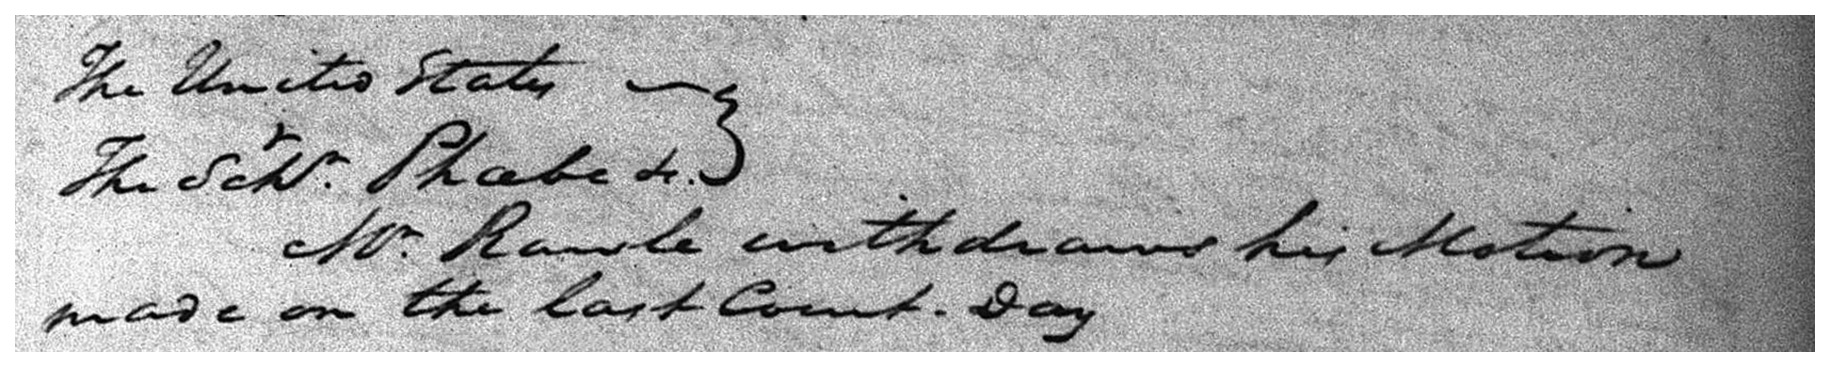 The United States
v
The Schr. Phœbe &.
Mr. Rawle withdraws his Motion
made on the last Court. Day